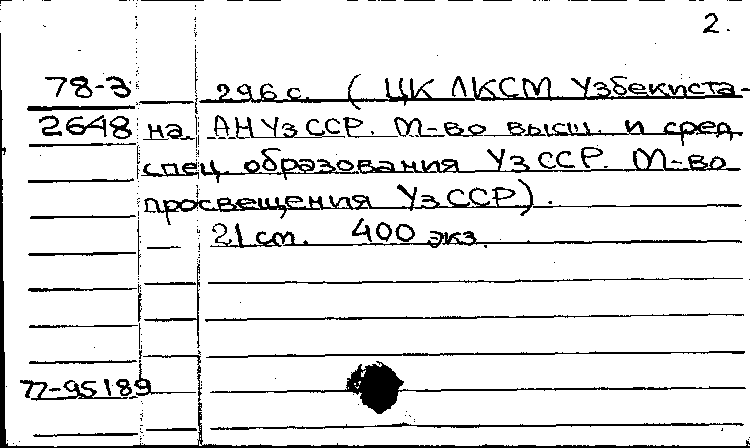 2.
78-3 296 с. ( ЦК ЛКСМ Узбекиста-
2648 на. АН УзССР. М-во высш. и сред.
спец. образования УзССР. М-во
просвещения УзССР).
21 см. 400 экз.
77-95189